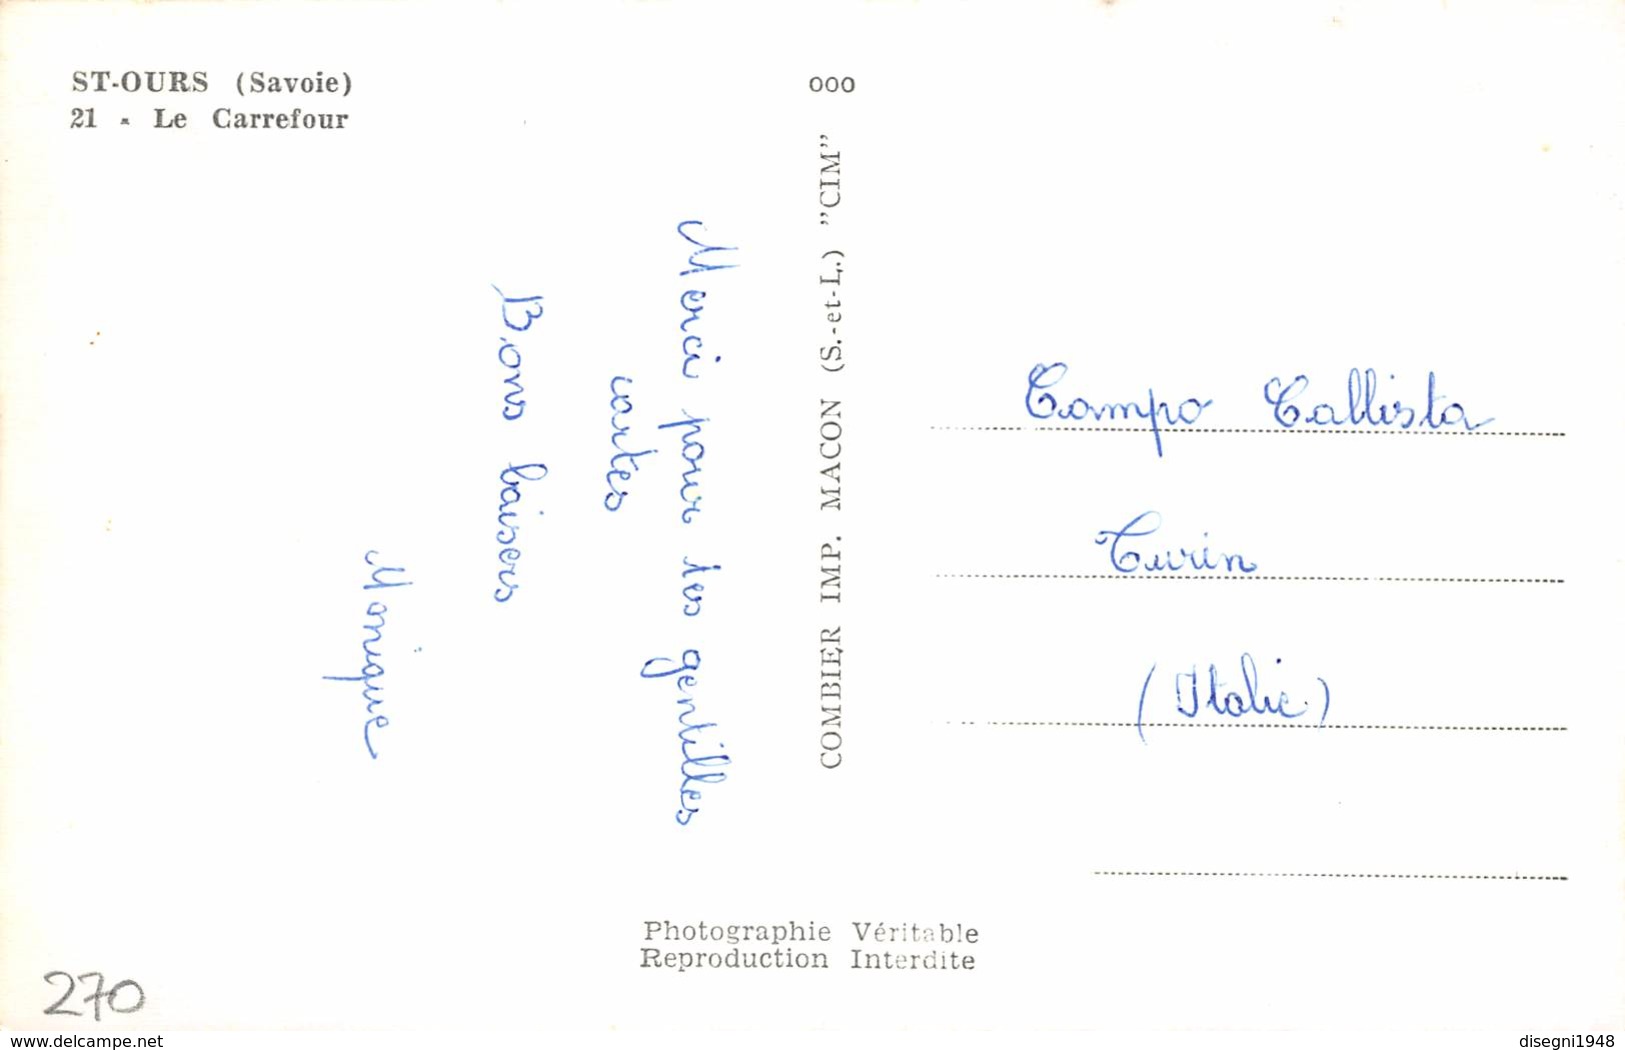 ST-OURS (Savoie)
21 - Le Carrefour
Merci pour les gentilles
cartes
Bons baisers
Monique
000
COMBIER IMP. MACON (S.-et-L.) "CIM"
Campo Callista
Turin
(Italie)
Photographie Véritable
Reproduction Interdite
270
www.delcampe.net
disegni1948